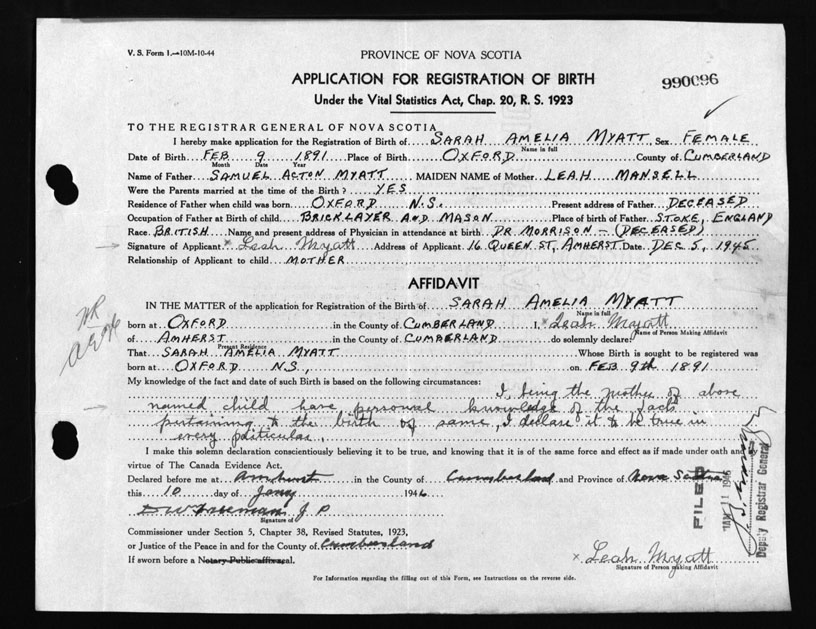 V. S. Form 1.—10M-10-44
PROVINCE OF NOVA SCOTIA
APPLICATION FOR REGISTRATION OF BIRTH
990096
Under the Vital Statistics Act, Chap. 20, R. S. 1923
TO THE REGISTRAR GENERAL OF NOVA SCOTIA
I hereby make application for the Registration of Birth of SARAH AMELIA MYATT Sex FEMALE
Name in full
Date of Birth FEB 9 1891 Place of Birth OXFORD County of CUMBERLAND
Month Date Year
Name of Father SAMUEL ACTON MYATT MAIDEN NAME of Mother LEAH MANSELL
Were the Parents married at the time of the Birth? YES
Residence of Father when child was born OXFORD N.S. Present address of Father DECEASED
Occupation of Father at Birth of child BRICKLAYER AND MASON Place of birth of Father STOKE, ENGLAND
Race BRITISH Name and present address of Physician in attendance at birth DR MORRISON – (DECEASED)
Signature of Applicant x Leah Myatt Address of Applicant 16 QUEEN ST, AMHERST Date DEC 5, 1945
Relationship of Applicant to child MOTHER
AFFIDAVIT
IN THE MATTER of the application for Registration of the Birth of SARAH AMELIA MYATT
Name in full
born at OXFORD in the County of CUMBERLAND I, x Leah Myatt
Name of Person Making Affidavit
of AMHERST in the County of CUMBERLAND do solemnly declare:
Present Residence
That SARAH AMELIA MYATT Whose Birth is sought to be registered was
born at OXFORD N.S., on FEB 9th 1891
My knowledge of the fact and date of such Birth is based on the following circumstances:
I, being the mother of above
named child have personal knowledge of the facts
pertaining to the birth of same, I declare it to be true in
every particular.
I make this solemn declaration conscientiously believing it to be true, and knowing that it is of the same force and effect as if made under oath and by
virtue of The Canada Evidence Act.
Declared before me at Amherst in the County of Cumberland and Province of Nova Scotia
this 10 day of Jany 1946
D W Freeman J P
Signature of
Commissioner under Section 5, Chapter 38, Revised Statutes, 1923,
or Justice of the Peace in and for the County of Cumberland
If sworn before a Notary Public affix seal.
x Leah Myatt
Signature of Person making Affidavit
For Information regarding the filling out of this Form, see Instructions on the reverse side.
FILED
11 1946
Deputy Registrar General